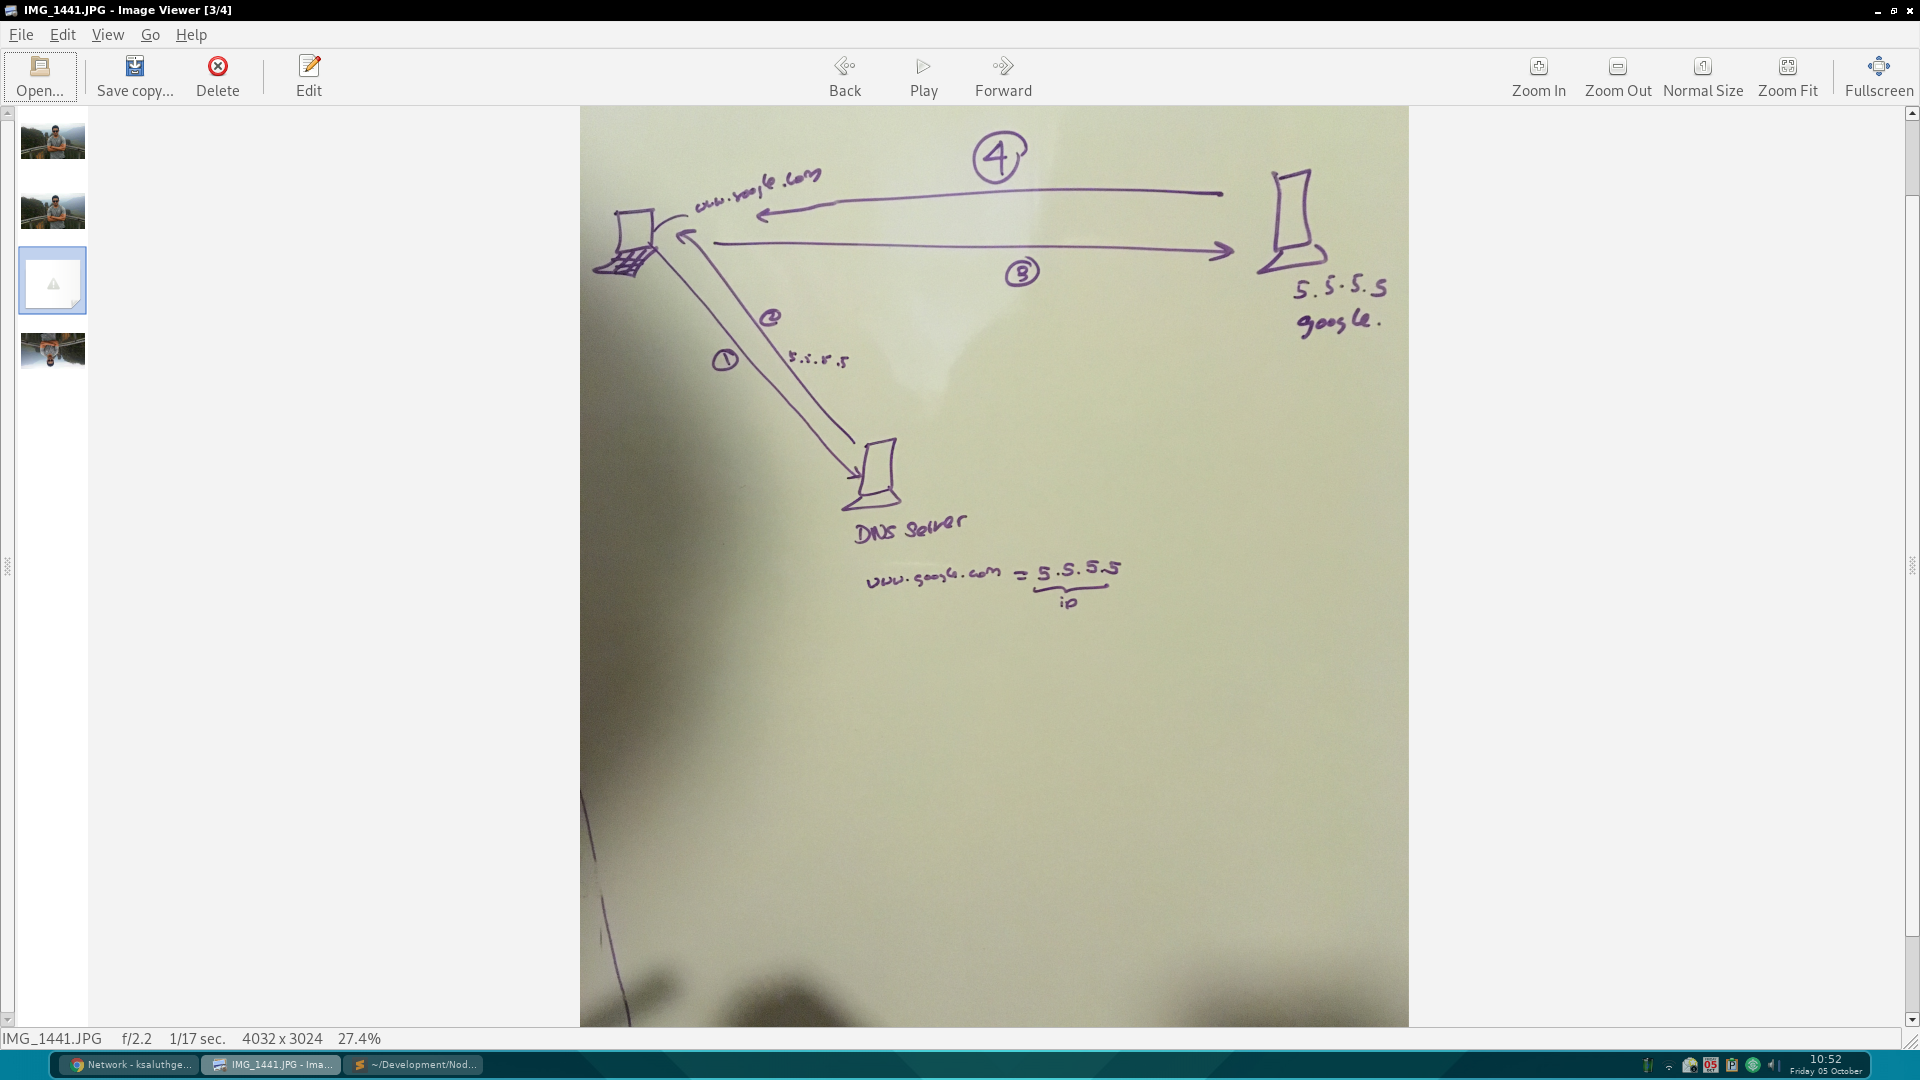 IMG_1441.JPG - Image Viewer [3/4]
File Edit View Go Help
Open... Save copy... Delete Edit Back Play Forward Zoom In Zoom Out Normal Size Zoom Fit Fullscreen
4
www.google.com
3
5.5.5.5
google.
2
1
5.5.5.5
DNS Server
www.google.com = 5.5.5.5
ip
IMG_1441.JPG f/2.2 1/17 sec. 4032 x 3024 27.4%
Network - ksaluthge... IMG_1441.JPG - Ima... ~/Development/Nod... 05 10:52
Friday 05 October